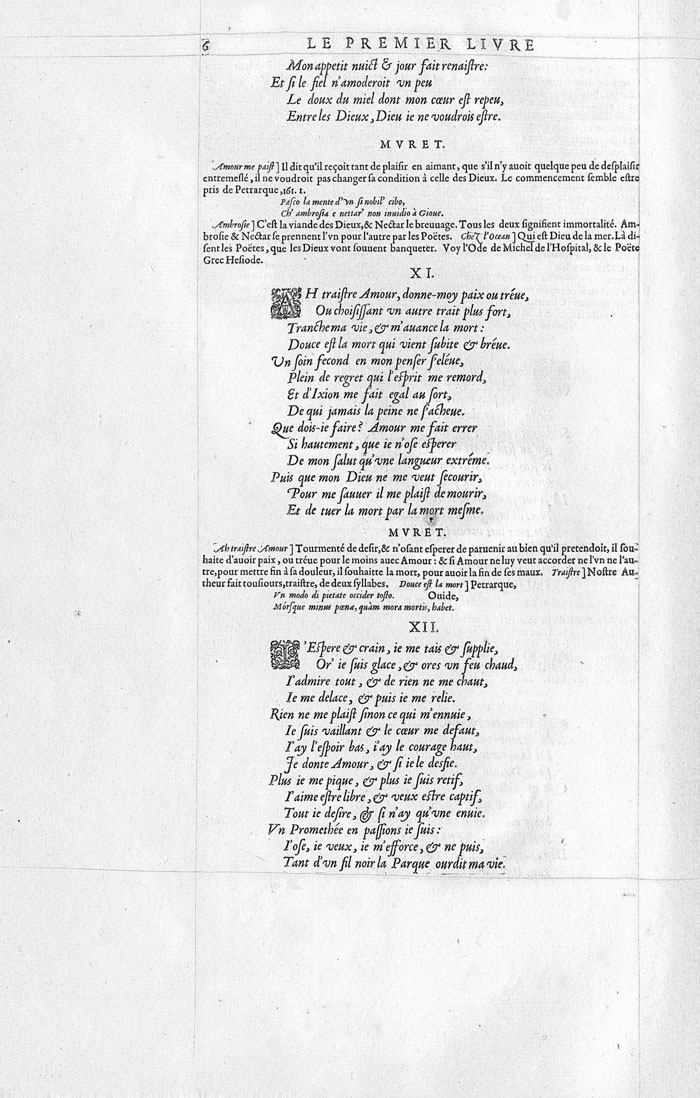 6 LE PREMIER LIVRE
Mon appetit nuict & jour fait renaiſtre:
Et ſi le fiel n'amoderoit vn peu
Le doux du miel dont mon cœur eſt repeu,
Entre les Dieux, Dieu ie ne voudrois eſtre.
MVRET.
Amour me paiſt] Il dit qu'il reçoit tant de plaiſir en aimant, que s'il n'y auoit quelque peu de deſplaiſir
entremeſlé, il ne voudroit pas changer ſa condition à celle des Dieux. Le commencement ſemble eſtre
pris de Petrarque, 161. 1.
Paſco la mente d'vn ſi nobil' cibo,
Ch' ambroſia e nettar' non inuidio à Gioue.
Ambroſie] C'eſt la viande des Dieux, & Nectar le breuuage. Tous les deux ſignifient immortalité. Am-
broſie & Nectar ſe prennent l'vn pour l'autre par les Poëtes. Chez l'Ocean] Qui eſt Dieu de la mer. Là di-
ſent les Poëtes, que les Dieux vont ſouuent banqueter. Voy l'Ode de Michel de l'Hoſpital, & le Poëte
Grec Heſiode.
XI.
AH traiſtre Amour, donne-moy paix ou tréue,
Ou choiſiſſant vn autre trait plus fort,
Tranche ma vie, & m'auance la mort:
Douce eſt la mort qui vient ſubite & bréue.
Vn ſoin fecond en mon penſer s'eléue,
Plein de regret qui l'eſprit me remord,
Et d'Ixion me fait egal au ſort,
De qui jamais la peine ne s'acheue.
Que dois-ie faire? Amour me fait errer
Si hautement, que ie n'oſe eſperer
De mon ſalut qu'vne langueur extréme.
Puis que mon Dieu ne me veut ſecourir,
Pour me ſauuer il me plaiſt de mourir,
Et de tuer la mort par la mort meſme.
MVRET.
Ah traiſtre Amour] Tourmenté de deſir, & n'oſant eſperer de paruenir au bien qu'il pretendoit, il ſou-
haite d'auoir paix, ou tréue pour le moins auec Amour: & ſi Amour ne luy veut accorder ne l'vn ne l'au-
tre, pour mettre fin à ſa douleur, il ſouhaitte la mort, pour auoir la fin de ſes maux. Traiſtre] Noſtre Au-
theur fait touſiours, traiſtre, de deux ſyllabes. Douce eſt la mort] Petrarque,
Vn modo di pietate occider toſto. Ouide,
Mórſque minus pœnæ, quàm mora mortis, habet.
XII.
I'Eſpere & crain, ie me tais & ſupplie,
Or' ie ſuis glace, & ores vn feu chaud,
I'admire tout, & de rien ne me chaut,
Ie me delace, & puis ie me relie.
Rien ne me plaiſt ſinon ce qui m'ennuie,
Ie ſuis vaillant & le cœur me defaut,
I'ay l'eſpoir bas, i'ay le courage haut,
Je donte Amour, & ſi ie le desfie.
Plus ie me pique, & plus ie ſuis retif,
I'aime eſtre libre, & veux eſtre captif,
Tout ie deſire, & ſi n'ay qu'vne enuie.
Vn Promethée en paſſions ie ſuis:
I'oſe, ie veux, ie m'efforce, & ne puis,
Tant d'vn fil noir la Parque ourdit ma vie.